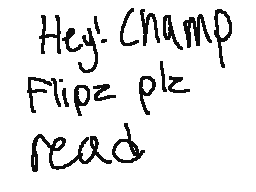 Hey! Champ
Flipz plz
read